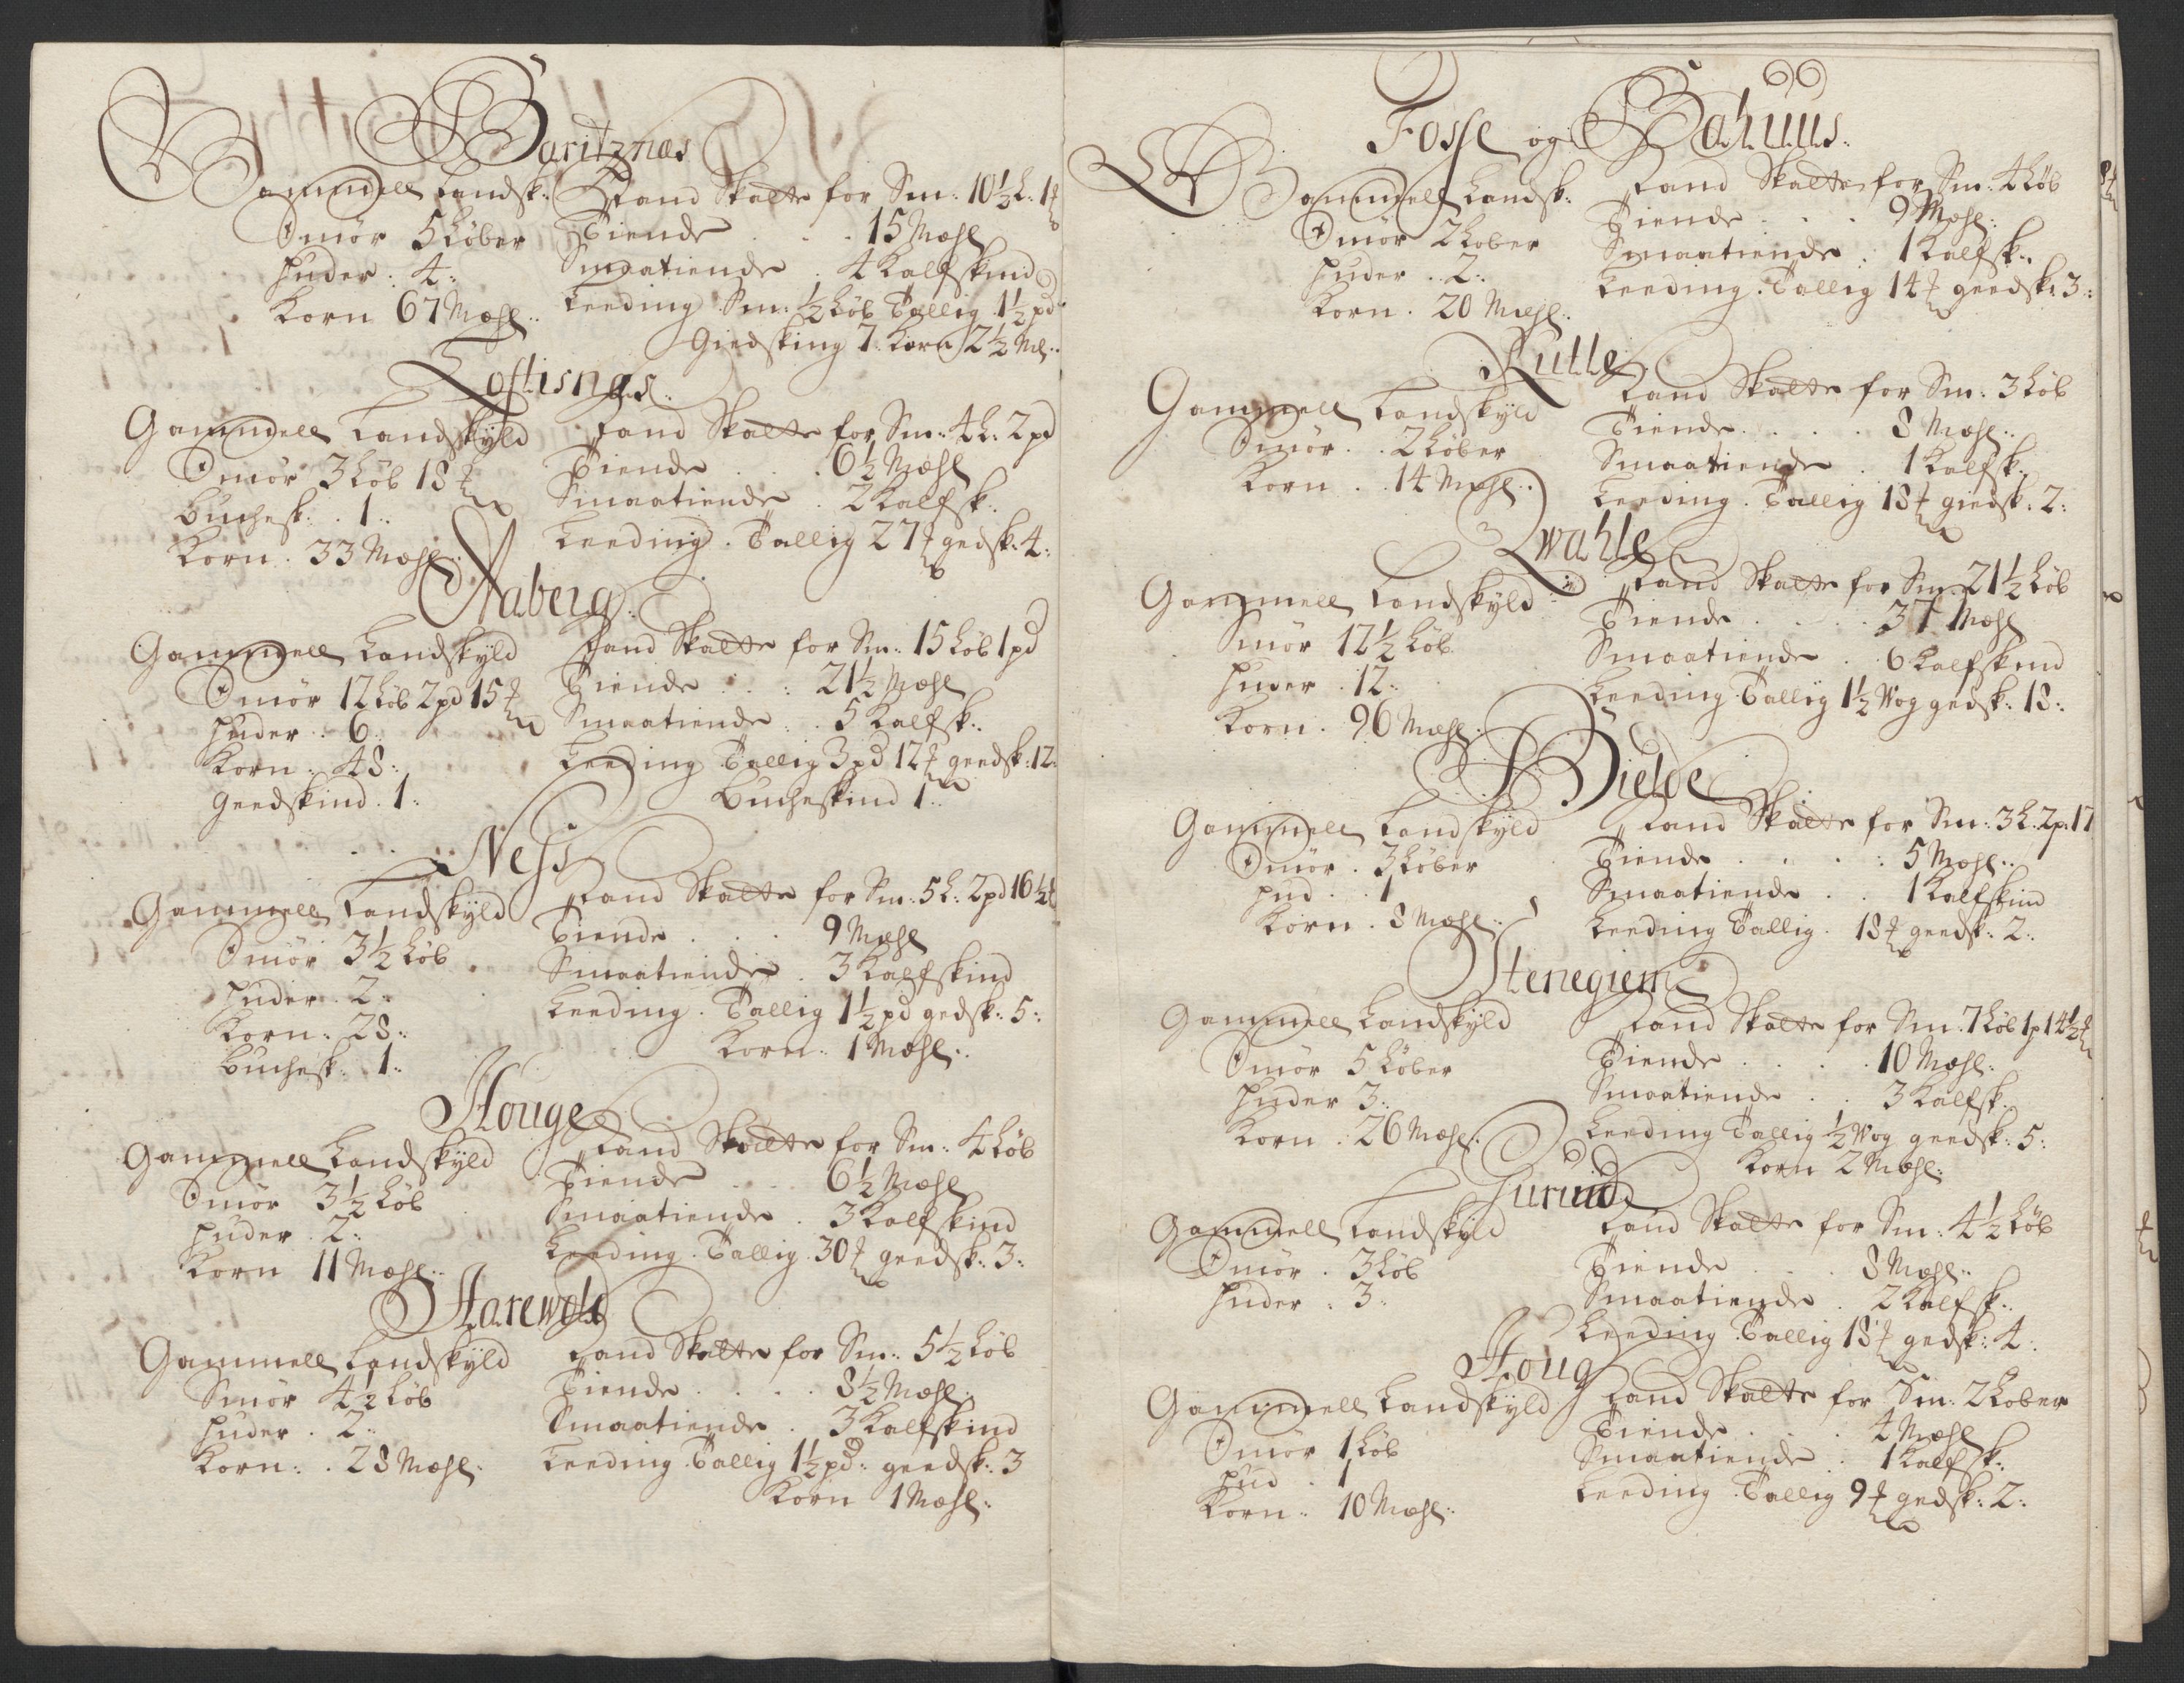 Baritznæs
Gammell Landsk:
Smør 5 Løber
Huder . 4 :
Korn 67 Mæhl :
Land Skatte for Sm: 10½ L: 1 ℔
Tiende . . . 15 Mæhl
Smaatiende . 4 Kalfskind
Leeding Sm: ½ Løb Tallig 1½ pd
Giedsking 7 Korn 2½ Ml :
Loftisnæs
Gammell Landskyld
Smør 3 Løb 18 ℔
Buchesk: . 1 :
Korn . 33 Mæhl :
Land Skatte for Sm: 4 L: 2 pd
Tiende . . . 6½ Mæhl
Smaatiende . 2 Kalfsk:
Leeding . Tallig 27 ℔ gedsk: 4 :
Aaberg
Gammell Landskyld
Smør 12 Løb 2 pd 15 ℔
Huder . 6 :
Korn . 48 :
Geedskind . 1 :
Land Skatte for Sm: 15 Løb 1 pd
Tiende . . : 21½ Mæhl
Smaatiende . . 5 Kalfsk:
Leeding Tallig 3 pd 12 ℔ geedsk: 12 :
Bucheskind 1 :
Ness
Gammell Landskyld
Smør 3½ Løb
Huder . 2 :
Korn : 28 :
Buchesk: 1 :
Land Skatte for Sm: 5 L: 2 pd 16½ ℔
Tiende . . . 9 Mæhl
Smaatiende . 3 Kalfskind
Leeding . Tallig 1½ pd gedsk: 5 :
Korn : 1 Mæhl :
Houge
Gammell Landskyld
Smør 3½ Løb
Huder . 2 :
Korn 11 Mæhl :
Land Skatte for Sm: 4 Løb
Tiende . . . 6½ Mæhl
Smaatiende . 3 Kalfskind
Leeding . Tallig . 30 ℔ geedsk: 3 :
Harewold
Gammell Landskyld
Smør 4½ Løb
Huder . 2 :
Korn : . 28 Mæhl :
Land Skatte for Sm: 5½ Løb
Tiende . . . . 8½ Mæhl :
Smaatiende . 3 Kalfskind
Leeding . Tallig 1½ pd : geedsk: 3
Korn 1 Mæhl :
Fosse og Bahuus
Gammell Landsk:
Smør 2 Løber
Huder . 2 :
Korn . 20 Mæhl :
Land Skatte for Sm: 4 Løb
Tiende . . . 9 Mæhl :
Smaatiende . 1 Kalfsk:
Leeding . Tallig 14 ℔ geedsk: 3 :
Rulle
Gammell Landskyld
Smør . . 2 Løber
Korn . . 14 Mæhl :
Land Skatte for Sm: 3 Løb
Tiende . . . . 8 Mæhl :
Smaatiende . 1 Kalfsk:
Leeding . Tallig 18 ℔ giedsk: 2 :
Qwahle
Gammell Landskyld
Smør 12½ Løb
Huder . 12 :
Korn . 96 Mæhl :
Land Skatte for Sm: 21½ Løb
Tiende . . . . 37 Mæhl
Smaatiende . . 6 Kalfskind
Leeding Tallig 1½ Wog gedsk: 18 :
Bielde
Gammell Landskyld
Smør . 3 Løber
Hud . . 1
Korn . 8 Mæhl :
Land Skatte for Sm: 3 L: 2 p: 17
Tiende . . . : 5 Mæhl :
Smaatiende . . 1 Kalfskind
Leeding Tallig . 18 ℔ geedsk: 2 :
Stenegiem
Gammell Landskyld
Smør 5 Løber
Huder 3 :
Korn . 26 Mæhl :
Land Skatte for Sm: 7 Løb 1 p 14½ ℔
Tiende . . . . 10 Mæhl :
Smaatiende . . 3 Kalfsk:
Leeding Tallig ½ Wog geedsk: 5 :
Korn 2 Mæhl :
Gurund
Gammell Landskyld
Smør . 3 Løb
Huder . 3 :
Land Skatte for Sm: 4½ Løb
Tiende . . . 8 Mæhl :
Smaatiende . 2 Kalfsk:
Leeding . Tallig 18 ℔ gedsk: 4 :
Houg
Gammell Landskyld
Smør 1 Løb
Hud . 1
Korn : 10 Mæhl :
Land Skatte for Sm: 2 Løber
Tiende . . . 4 Mæhl
Smaatiende . 1 Kalfsk:
Leeding . Tallig 9 ℔ gedsk: 2 :